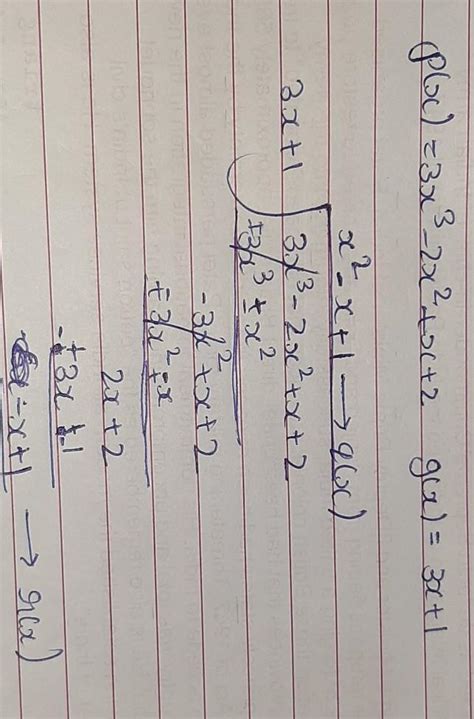 p(x) = 3x³ - 2x² + x + 2 g(x) = 3x + 1
x² - x + 1 → q(x)
3x + 1 3x³ - 2x² + x + 2
3x³ ± x²
-3x² + x + 2
∓3x² - x
2x + 2
3x ± 1
-x + 1 → r(x)